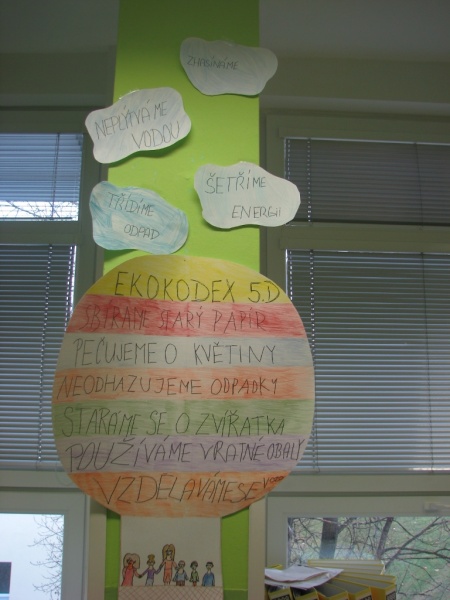 ZHASÍNÁME
NEPLÝTVÁME
VODOU
ŠETŘÍME
ENERGII
TŘÍDÍME
ODPAD
EKOKODEX 5.D
SBÍRÁME STARÝ PAPÍR
PEČUJEME O KVĚTINY
NEODHAZUJEME ODPADKY
STARÁME SE O ZVÍŘATKA
POUŽÍVÁME VRATNÉ OBALY
VZDĚLÁVÁME SE